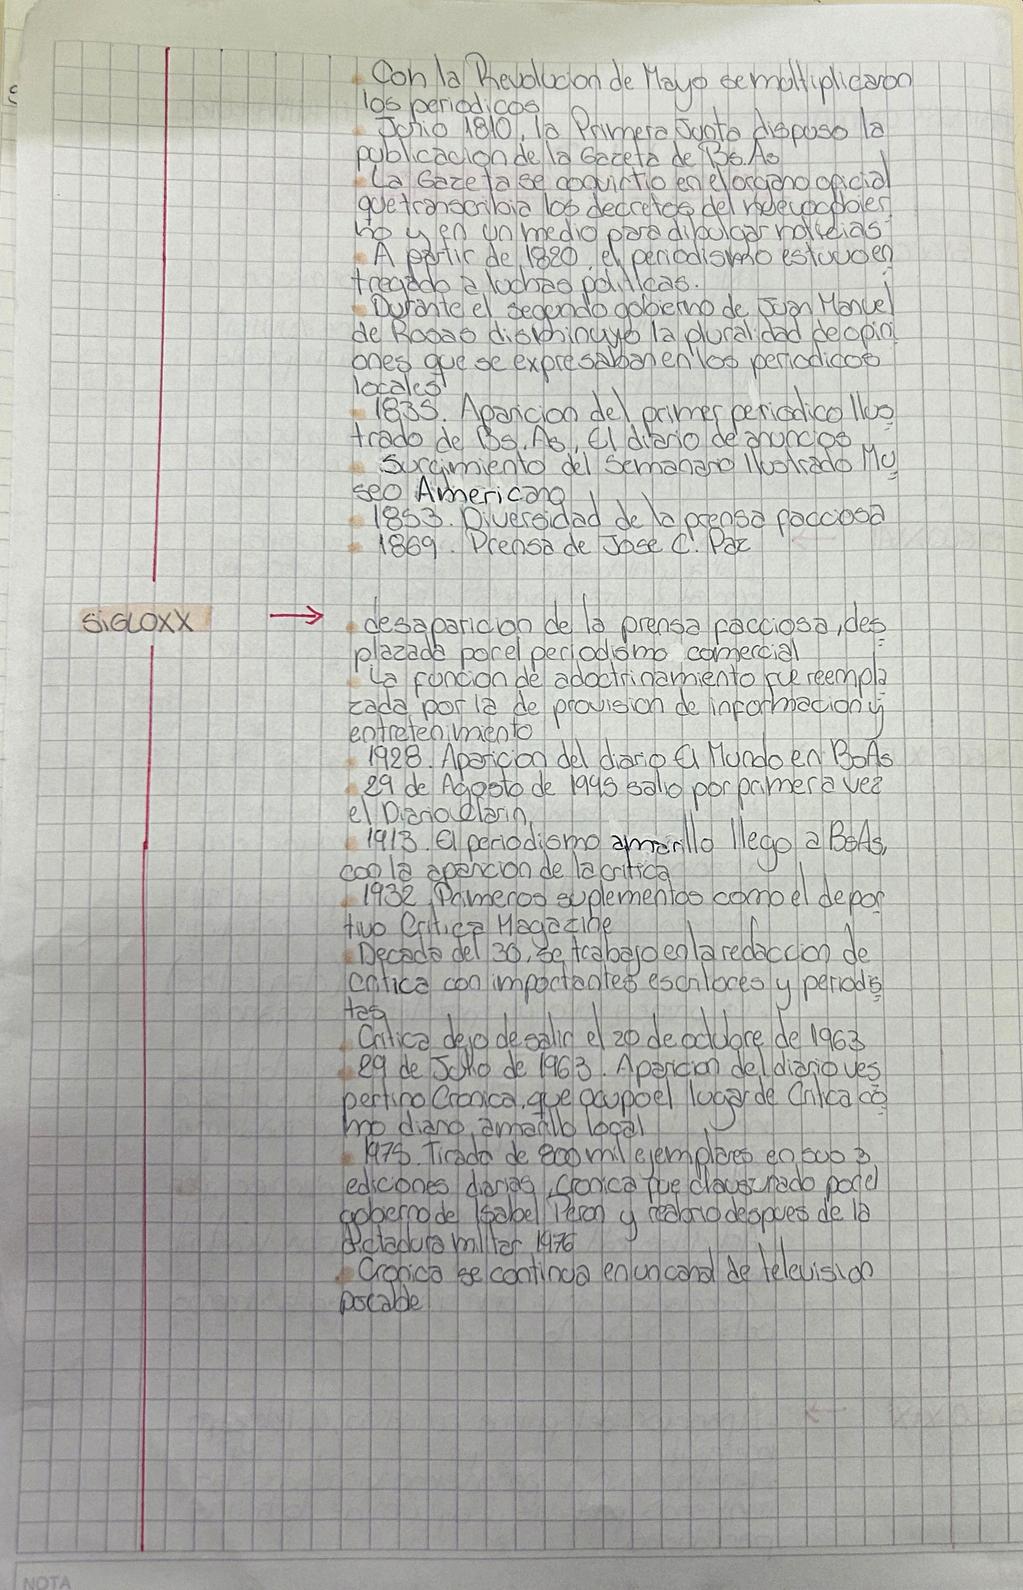 Con la Revolucion de Mayo se multiplicaron
los periodicos
Junio 1810, la Primera Junta dispuso la
publicacion de la Gaceta de Bs.As
La Gazeta se convirtio en el organo oficial
que transcribia los decretos del nuevo gobier
no y en un medio para dibulgar noticias
A partir de 1820, el periodismo estuvo en
tregado a luchas politicas.
Durante el segundo gobierno de Juan Manuel
de Rosas disminuyo la pluralidad de opini
ones que se expresaban en los periodicos
locales
1835. Aparicion del primer periodico Ilus
trado de Bs.As, El diario de anuncios
Surgimiento del Semanario Ilustrado Mu
seo Americano
1853. Diversidad de la prensa facciosa
1869. Prensa de Jose C. Paz
SIGLO XX → desaparicion de la prensa facciosa, des
plazada por el periodismo comercial
La funcion de adoctrinamiento fue reempla
zada por la de provision de informacion y
entretenimiento
1928. Aparicion del diario El Mundo en BsAs
29 de Agosto de 1945 salio por primera vez
el Diario Clarin,
1913. El periodismo amarillo llego a BsAs,
con la aparicion de la critica
1932, Primeros suplementos como el depor
tivo Critica Magazine
Decada del 30, se trabajo en la redaccion de
critica con importantes escritores y periodis
tas
Critica dejo de salir el 20 de octubre de 1963
29 de Julio de 1963. Aparicion del diario ves
pertino Cronica, que ocupo el lugar de Critica co
mo diario, amarillo local
1975. Tirada de 800 mil ejemplares en sus 3
ediciones diarias, cronica fue clausurado por el
gobierno de Isabel Peron y reabrio despues de la
dictadura militar 1976
Cronica se continua en un canal de television
por cable
NOTA